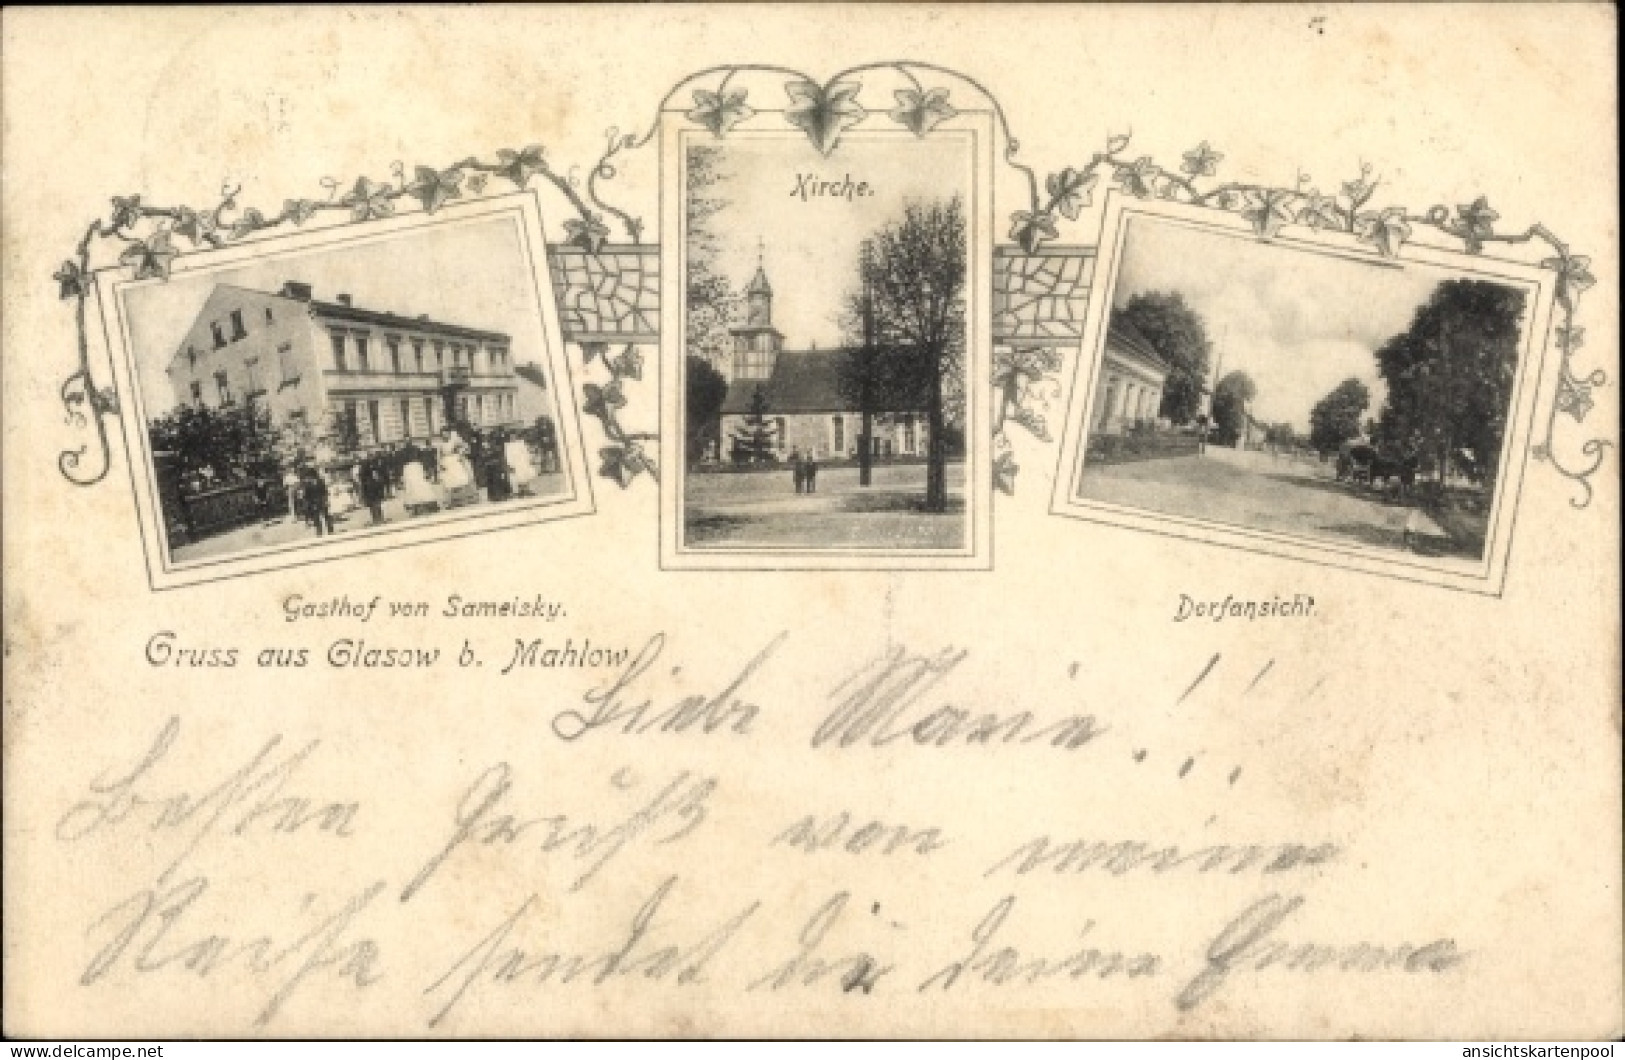 Kirche.
Gasthof von Sameisky.
Dorfansicht.
Gruss aus Glasow b. Mahlow.
Liebe Marie!!!
Besten Gruß von meiner
Reise sendet dir deine Emma
www.delcampe.net
ansichtskartenpool